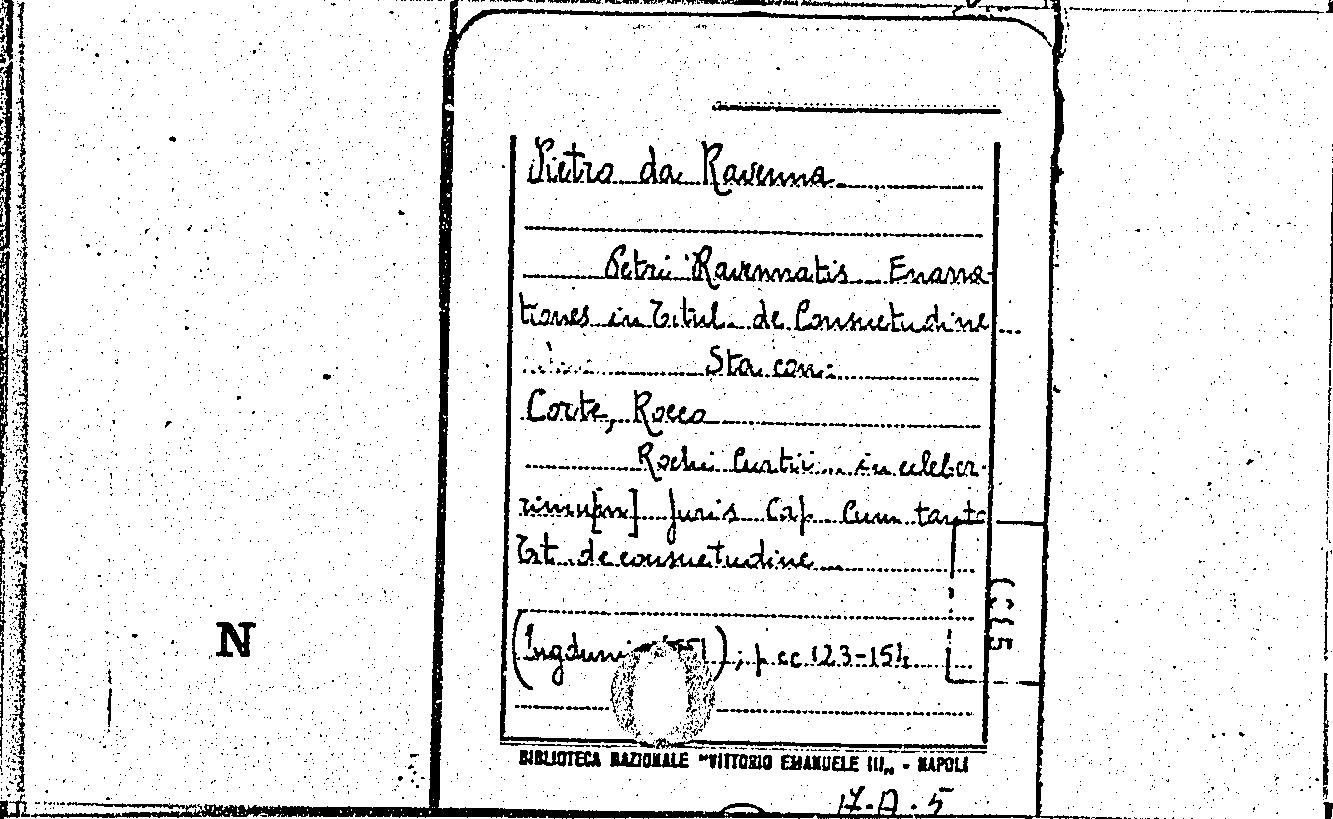 Pietro da Ravenna
Petri Ravennatis Enarra-
tiones in Titul. de Consuetudine
Sta con:
Corte, Rocco
Rochi Curtii... in celeber-
rimu[m] Juris Cap Cum tanto
Tit. de consuetudine
N
1551); p cc 123-154
BIBLIOTECA NAZIONALE "VITTORIO EMANUELE III„ - NAPOLI
17-A-5